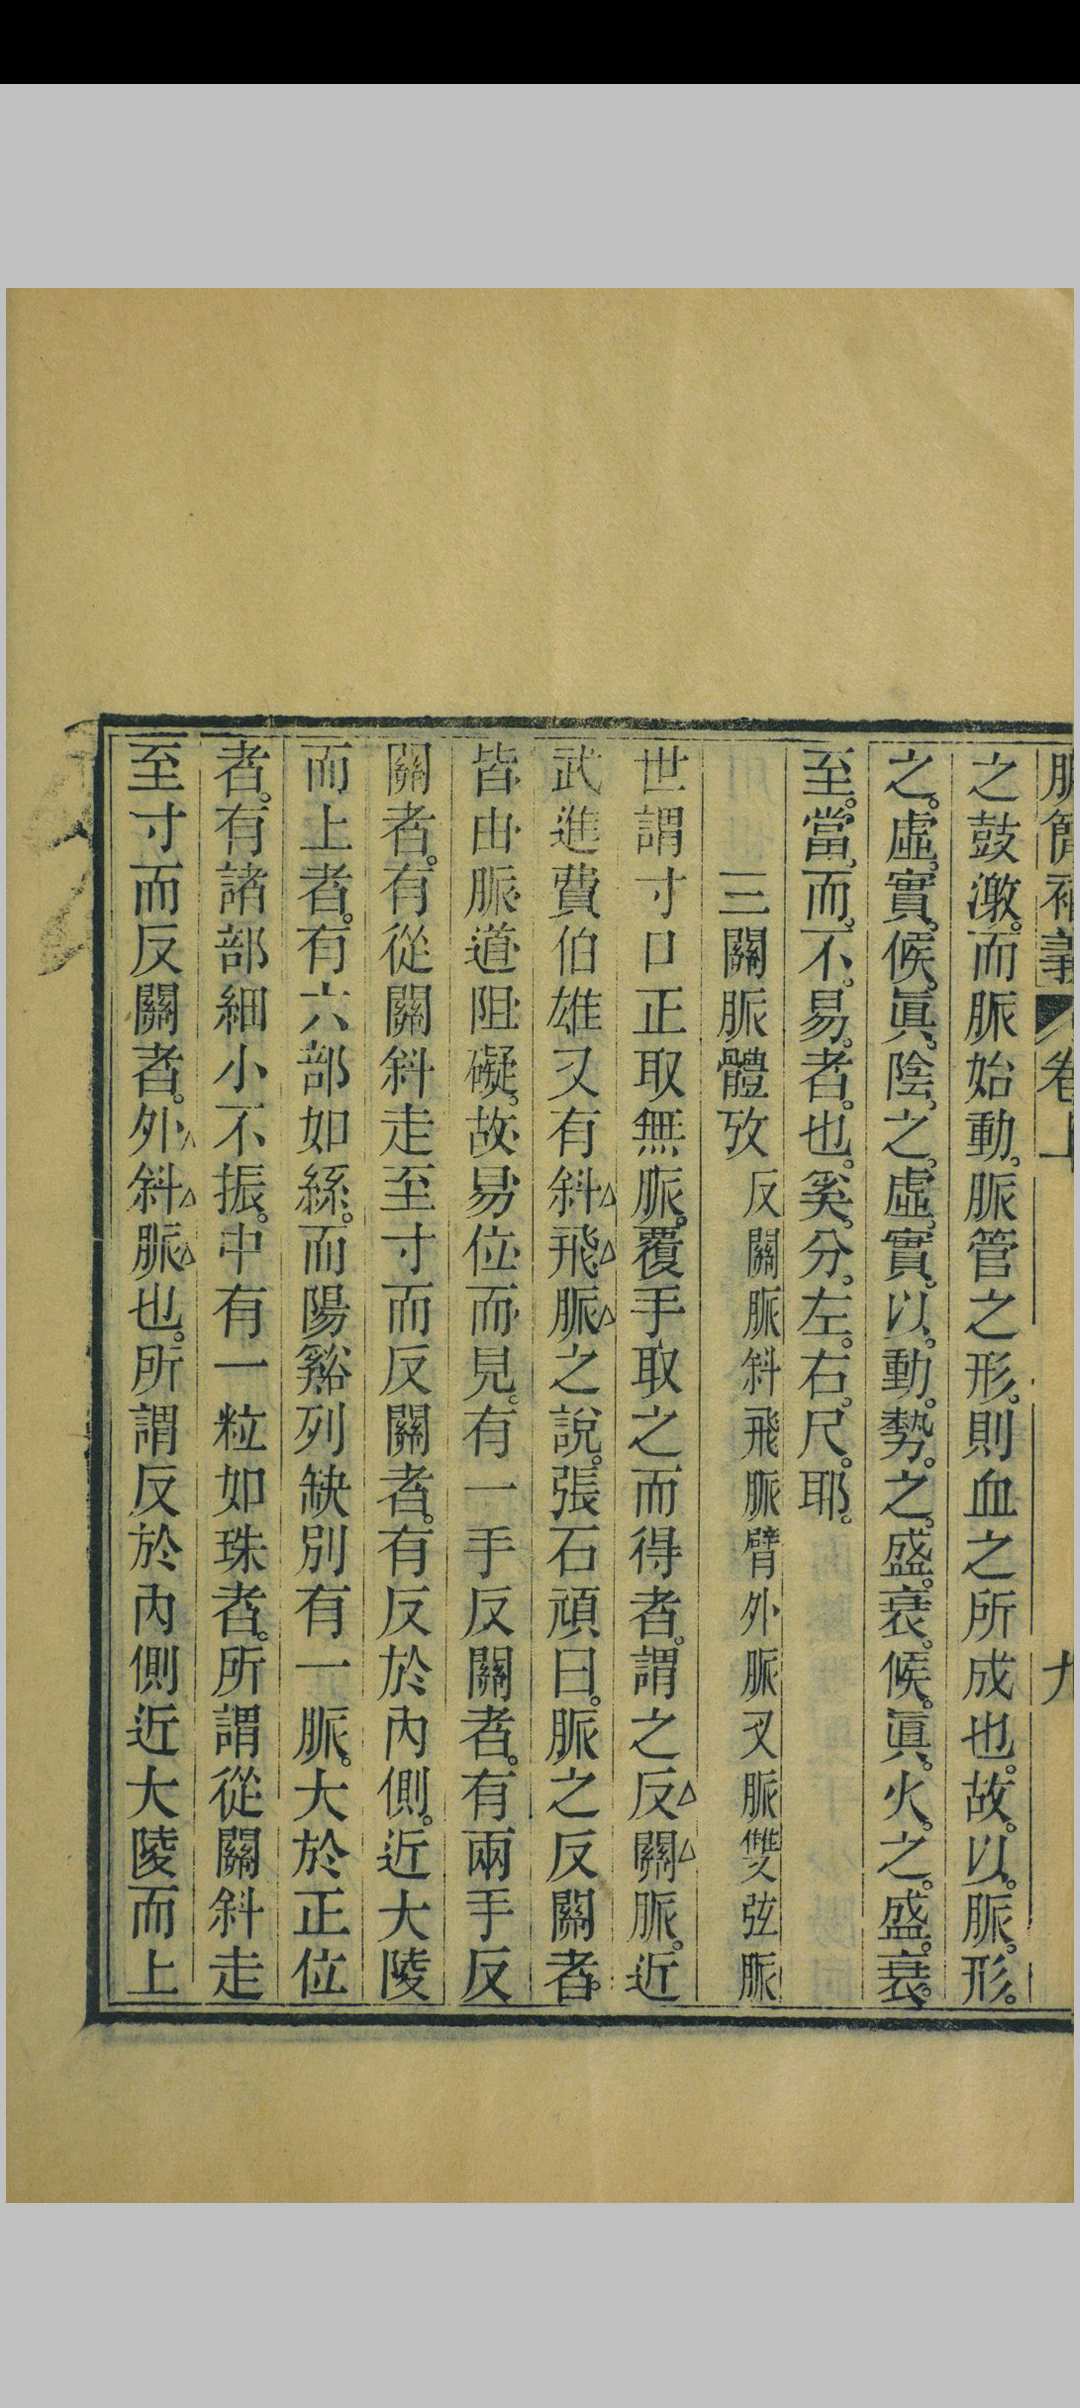 脈簡補義 卷上 九
之鼓激。而脈始動。脈管之形。則血之所成也。故。以。脈。形。
之。虛。實。候。眞。陰。之。虛。實。以。動。勢。之。盛。衰。候。眞。火。之。盛。衰。
至。當。而。不。易。者。也。奚。分。左。右。尺。耶。
三關脈體攷 反關脈斜飛脈臂外脈叉脈雙弦脈
世謂寸口正取無脈。覆手取之而得者。謂之反關脈。近
武進費伯雄又有斜飛脈之說。張石頑曰。脈之反關者。
皆由脈道阻礙。故易位而見。有一手反關者。有兩手反
關者。有從關斜走至寸而反關者。有反於內側。近大陵
而上者。有六部如絲。而陽谿列缺別有一脈。大於正位
者。有諸部細小不振。中有一粒如珠者。所謂從關斜走
至寸而反關者。外斜脈也。所謂反於內側近大陵而上